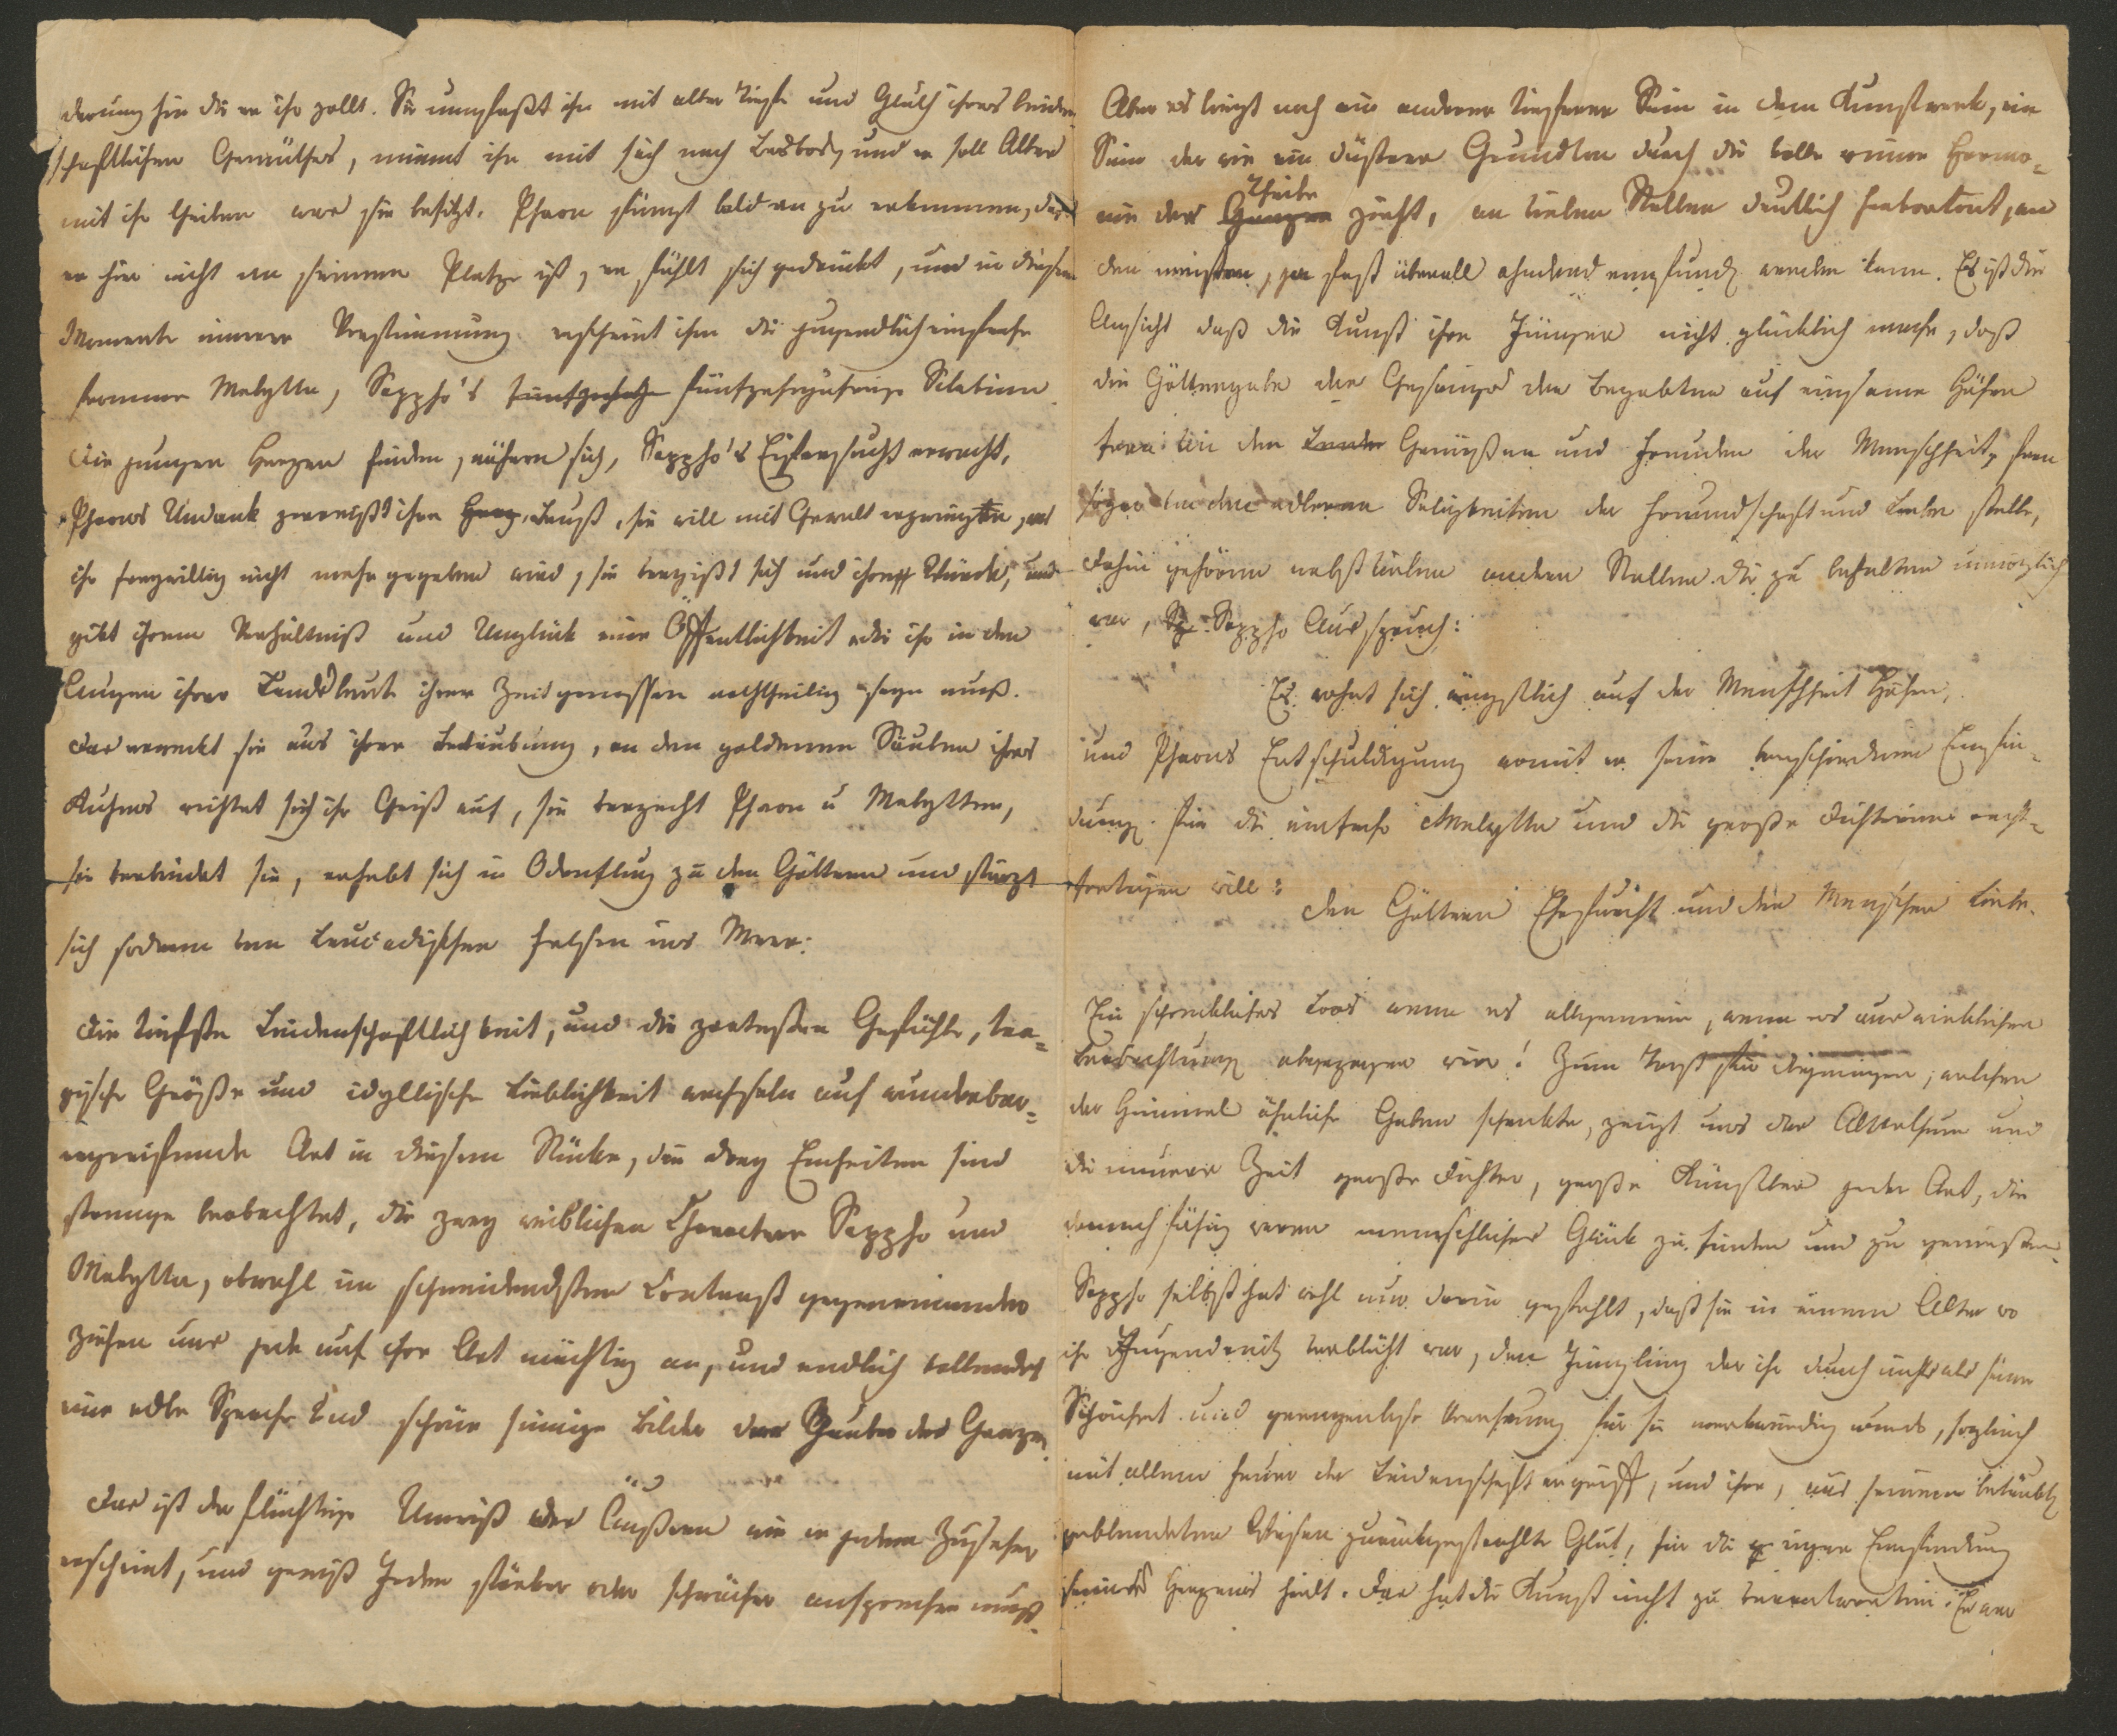 derung hin die er ihr zollt. Sie umfaßt ihn mit aller Tiefe und Gluth ihres leiden-
schaftlichen Gemüthes, nimmt ihn mit sich nach Lesbos, und er soll Alles
mit ihr theilen was sie besitzt. Phaon fängt bald an zu erkennen, daß
er hier nicht an seinem Platze ist, er fühlt sich gedrückt, und in diesem
Momente innerer Verstimmung erscheint ihm die jugendlich einfache
fromme Melytta, Sappho's fünfzehnjährige Sclavinn.
Die jungen Herzen finden, nähern sich, Sappho's Eifersucht erwacht,
Phaons Undank zerreißt ihre Herz Brust, sie will mit Gewalt erzwingen, was
ihr freywillig nicht mehr gegeben wird, sie vergißt sich und ihre Würde, und
gibt ihrem Verhältniß und Unglück eine Öffentlichkeit die ihr in den
Augen ihrer Landsleute ihrer Zeitgenossen nachtheilig seyn muß.
Das erweckt sie aus ihrer Betäubung, an den goldenen Säulen ihres
Ruhmes richtet sich ihr Geist auf, sie verzeiht Phaon u Melytten,
sie verbindet sie, erhebt sich in Odenflug zu den Göttern und stürzt
sich sodann vom Leucadischen Felsen ins Meer.
Die tiefste Leidenschaftlichkeit, und die zartesten Gefühle, tra=
gische Größe und idyllische Lieblichkeit wechseln auf wunderbar=
ergreifende Art in diesem Stücke, die drey Einheiten sind
strenge beobachtet, die zwey weiblichen Charactere Sappho und
Melytta, obwohl im schneidendsten Contrast gegeneinander
ziehen uns jede auf ihre Art mächtig an, und endlich vollendet
eine edle Sprache und schöne sinnige Bilder den Zauber des Ganzen.
Das ist der flüchtige Umriß des Äußern wie er jedem Zuseher
erscheint, und gewiß Jeden stärker oder schwächer ansprechen muß.
Aber es liegt noch ein anderer tieferer Sinn in dem Kunstwerk, ein
Sinn der wie ein düsterer Grundton durch die volle reine Harmo=
nie des Ganzen Theile zieht, an vielen Stellen deutlich hervortönt, an
den meisten, ja fast überall ahndend empfunden werden kann. Es ist die
Ansicht daß die Kunst ihre Jünger nicht glücklich mache, daß
die Göttergabe des Gesanges den Begabten auf einsame Höhen
fern von den Genüßen und Freuden der Menschheit, fern
sogar von den edleren Seligkeiten der Freundschaft und Liebe stelle,
Dahin gehören nebst vielen andern Stellen die zu behalten unmöglich
war, Sappho Ausspruch:
Es wohnt sich ängstlich auf der Menschheit Höhen,
und Phaons Entschuldigung womit er seine verschiedene Empfin-
dung für die einfache Melytta und die große Dichterinn recht=
fertigen will:
Den Göttern Ehrfurcht und den Menschen Liebe.
Ein schreckliches Loos wenn es allgemein, wenn es aus wirklichen
Beobachtung abgezogen wär! Zum Trost für diejenigen, welchen
der Himmel ähnliche Gaben schenkte, zeigt uns das Alterthum und
die neuere Zeit große Dichter, große Künstler jeder Art, die
dennoch fähig waren menschliches Glück zu finden und zu genießen.
Sappho selbst hat wohl nur darin gefehlt, daß sie in einem Alter wo
ihr Jugendreitz verblüht war, den Jüngling der ihr durch nichts als seine
Schönheit und grenzenlose Verehrung für sie merkwürdig wurde, sogleich
mit allem Feuer der Leidenschaft ergriff, und ihre, aus seinem betäubten
geblendeten Wesen zurückgestrahlte Glut, für die eigene Empfindung
seines Herzens hielt. Das hat die Kunst nicht zu verantworten. Er war